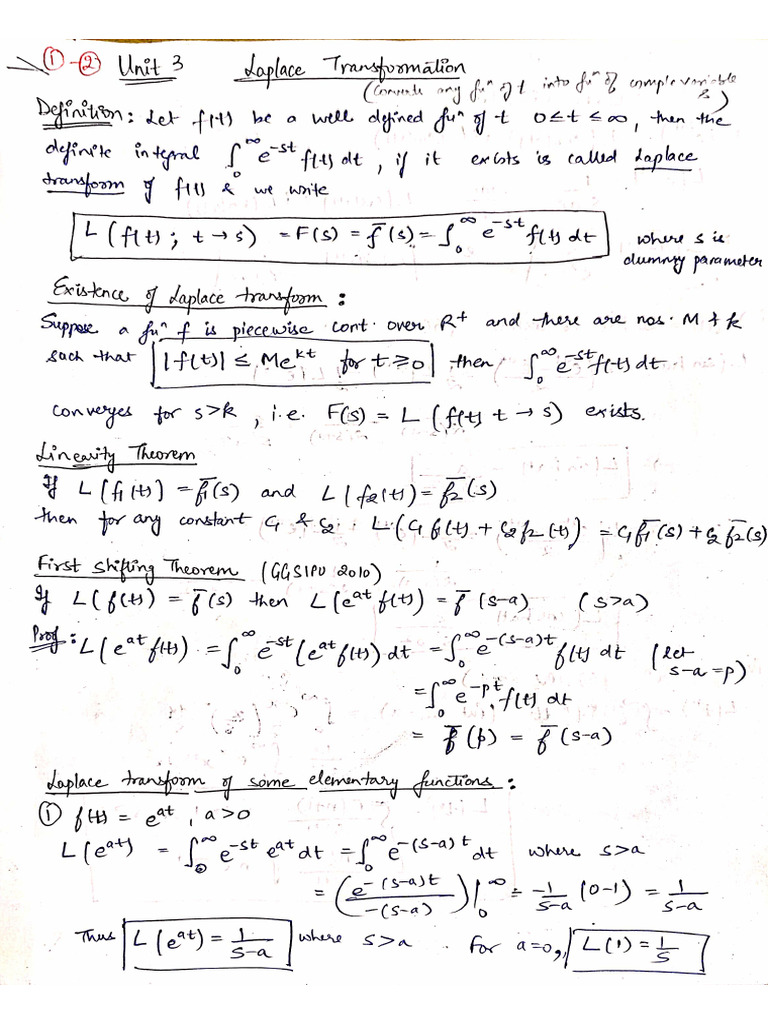 ①-② Unit 3 Laplace Transformation
(Converts any fuⁿ of t into fuⁿ of complex variable s)
Definition: Let f(t) be a well defined fuⁿ of t 0≤t≤∞, then the
definite integral ∫₀^∞ e^{-st} f(t) dt, if it exists is called Laplace
transform of f(t) & we write
L(f(t); t→s) = F(s) = f̄(s) = ∫₀^∞ e^{-st} f(t) dt where s is
dummy parameter
Existence of Laplace transform:
Suppose a fuⁿ f is piecewise cont. over R⁺ and there are nos. M & k
such that |f(t)| ≤ Me^{kt} for t≥0 then ∫₀^∞ e^{-st} f(t) dt
converges for s>k, i.e. F(s) = L(f(t) t→s) exists.
Linearity Theorem
If L(f₁(t)) = f̄₁(s) and L(f₂(t)) = f̄₂(s)
then for any constant C₁ & C₂. L(C₁ f₁(t) + C₂ f₂(t)) = C₁ f̄₁(s) + C₂ f̄₂(s)
First Shifting Theorem (GGSIPU 2010)
If L(f(t)) = f̄(s) then L(e^{at} f(t)) = f̄(s-a) (s>a)
Proof: L(e^{at} f(t)) = ∫₀^∞ e^{-st} (e^{at} f(t)) dt = ∫₀^∞ e^{-(s-a)t} f(t) dt (let
s-a=p)
= ∫₀^∞ e^{-pt} f(t) dt
= f̄(p) = f̄(s-a)
Laplace transform of some elementary functions:
① f(t) = e^{at}, a>0
L(e^{at}) = ∫₀^∞ e^{-st} e^{at} dt = ∫₀^∞ e^{-(s-a)t} dt where s>a
= (e^{-(s-a)t}/-(s-a))|₀^∞ = -1/(s-a) (0-1) = 1/(s-a)
Thus L(e^{at}) = 1/(s-a) where s>a. For a=0, L(1) = 1/s